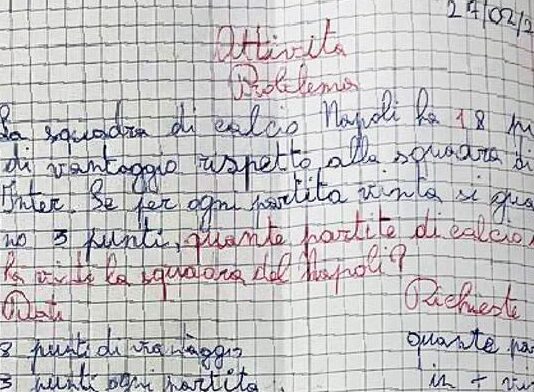 27/02/2
Attività
Problema
La squadra di calcio Napoli ha 18 pu
di vantaggio rispetto alla squadra di
Inter. Se per ogni partita vinta si gua
no 3 punti, quante partite di calcio
ha vinto la squadra del Napoli?
Dati
Richieste
8 punti di vanàggio
quante pa
3 punti ogni partita
in + vin